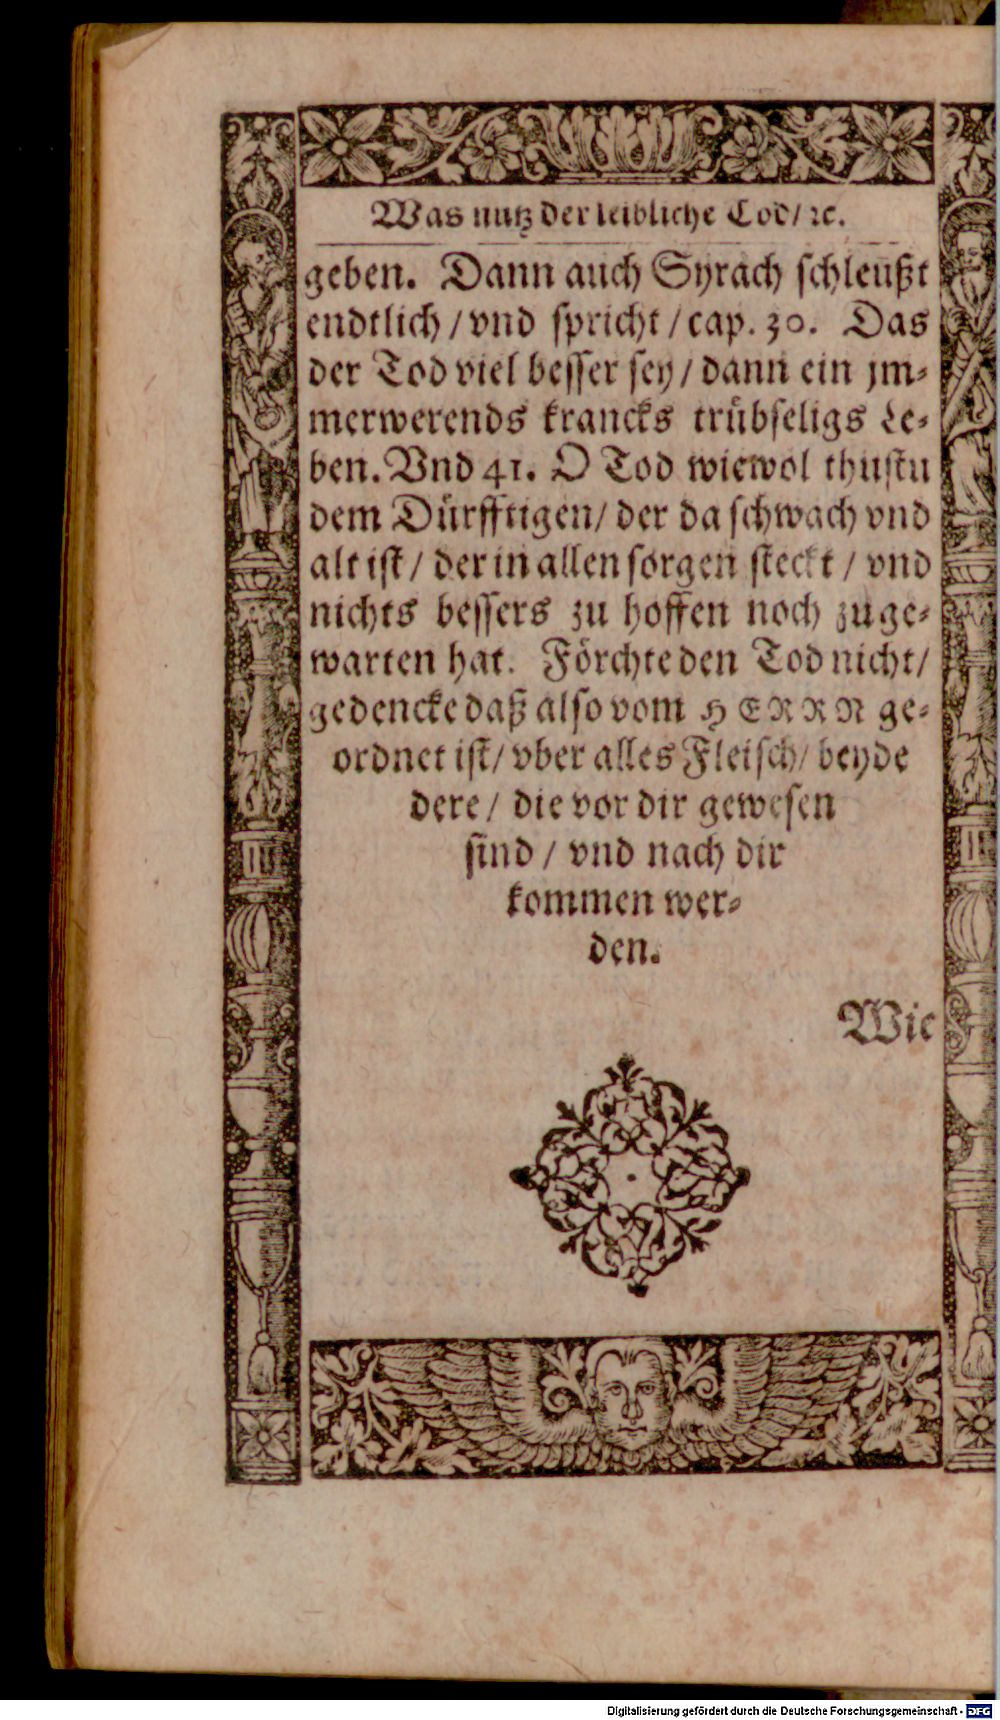 Was nutz der leibliche Tod/ ꝛc.
geben. Dann auch Syrach schleußt
endtlich / vnd spricht / cap. 30. Das
der Tod viel besser sey / dann ein jm⸗
merwerends krancks trübseligs Le⸗
ben. Vnd 41. O Tod wiewol thustu
dem Dürfftigen/ der da schwach vnd
alt ist / der in allen sorgen steckt / vnd
nichts bessers zu hoffen noch zuge⸗
warten hat. Förchte den Tod nicht/
gedencke daß also vom HERRN ge⸗
ordnet ist/ vber alles Fleisch/ beyde
dere / die vor dir gewesen
sind / vnd nach dir
kommen wer⸗
den.
Wie
Digitalisierung gefördert durch die Deutsche Forschungsgemeinschaft - DFG